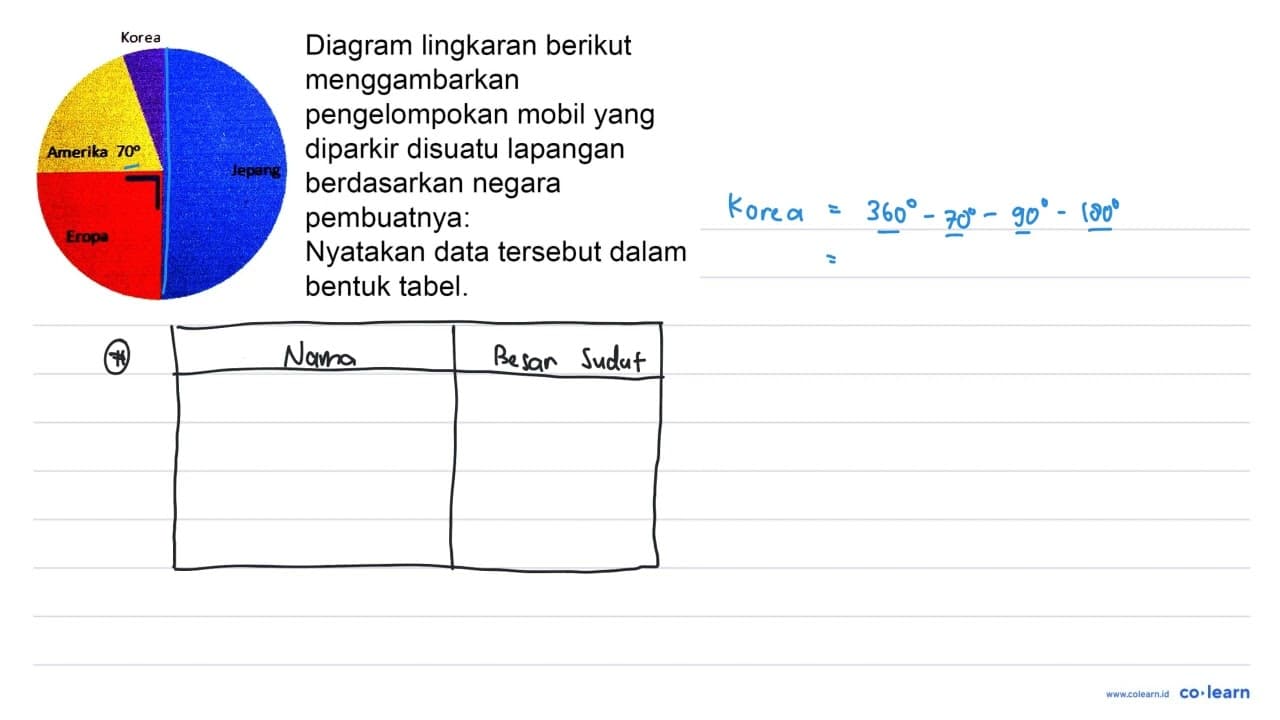 Korea
Amerika 70°
Jepang
Eropa
Diagram lingkaran berikut
menggambarkan
pengelompokan mobil yang
diparkir disuatu lapangan
berdasarkan negara
pembuatnya:
Nyatakan data tersebut dalam
bentuk tabel.
Korea = 360° - 70° - 90° - 180°
=
Nama Besar Sudut
www.colearn.id co·learn